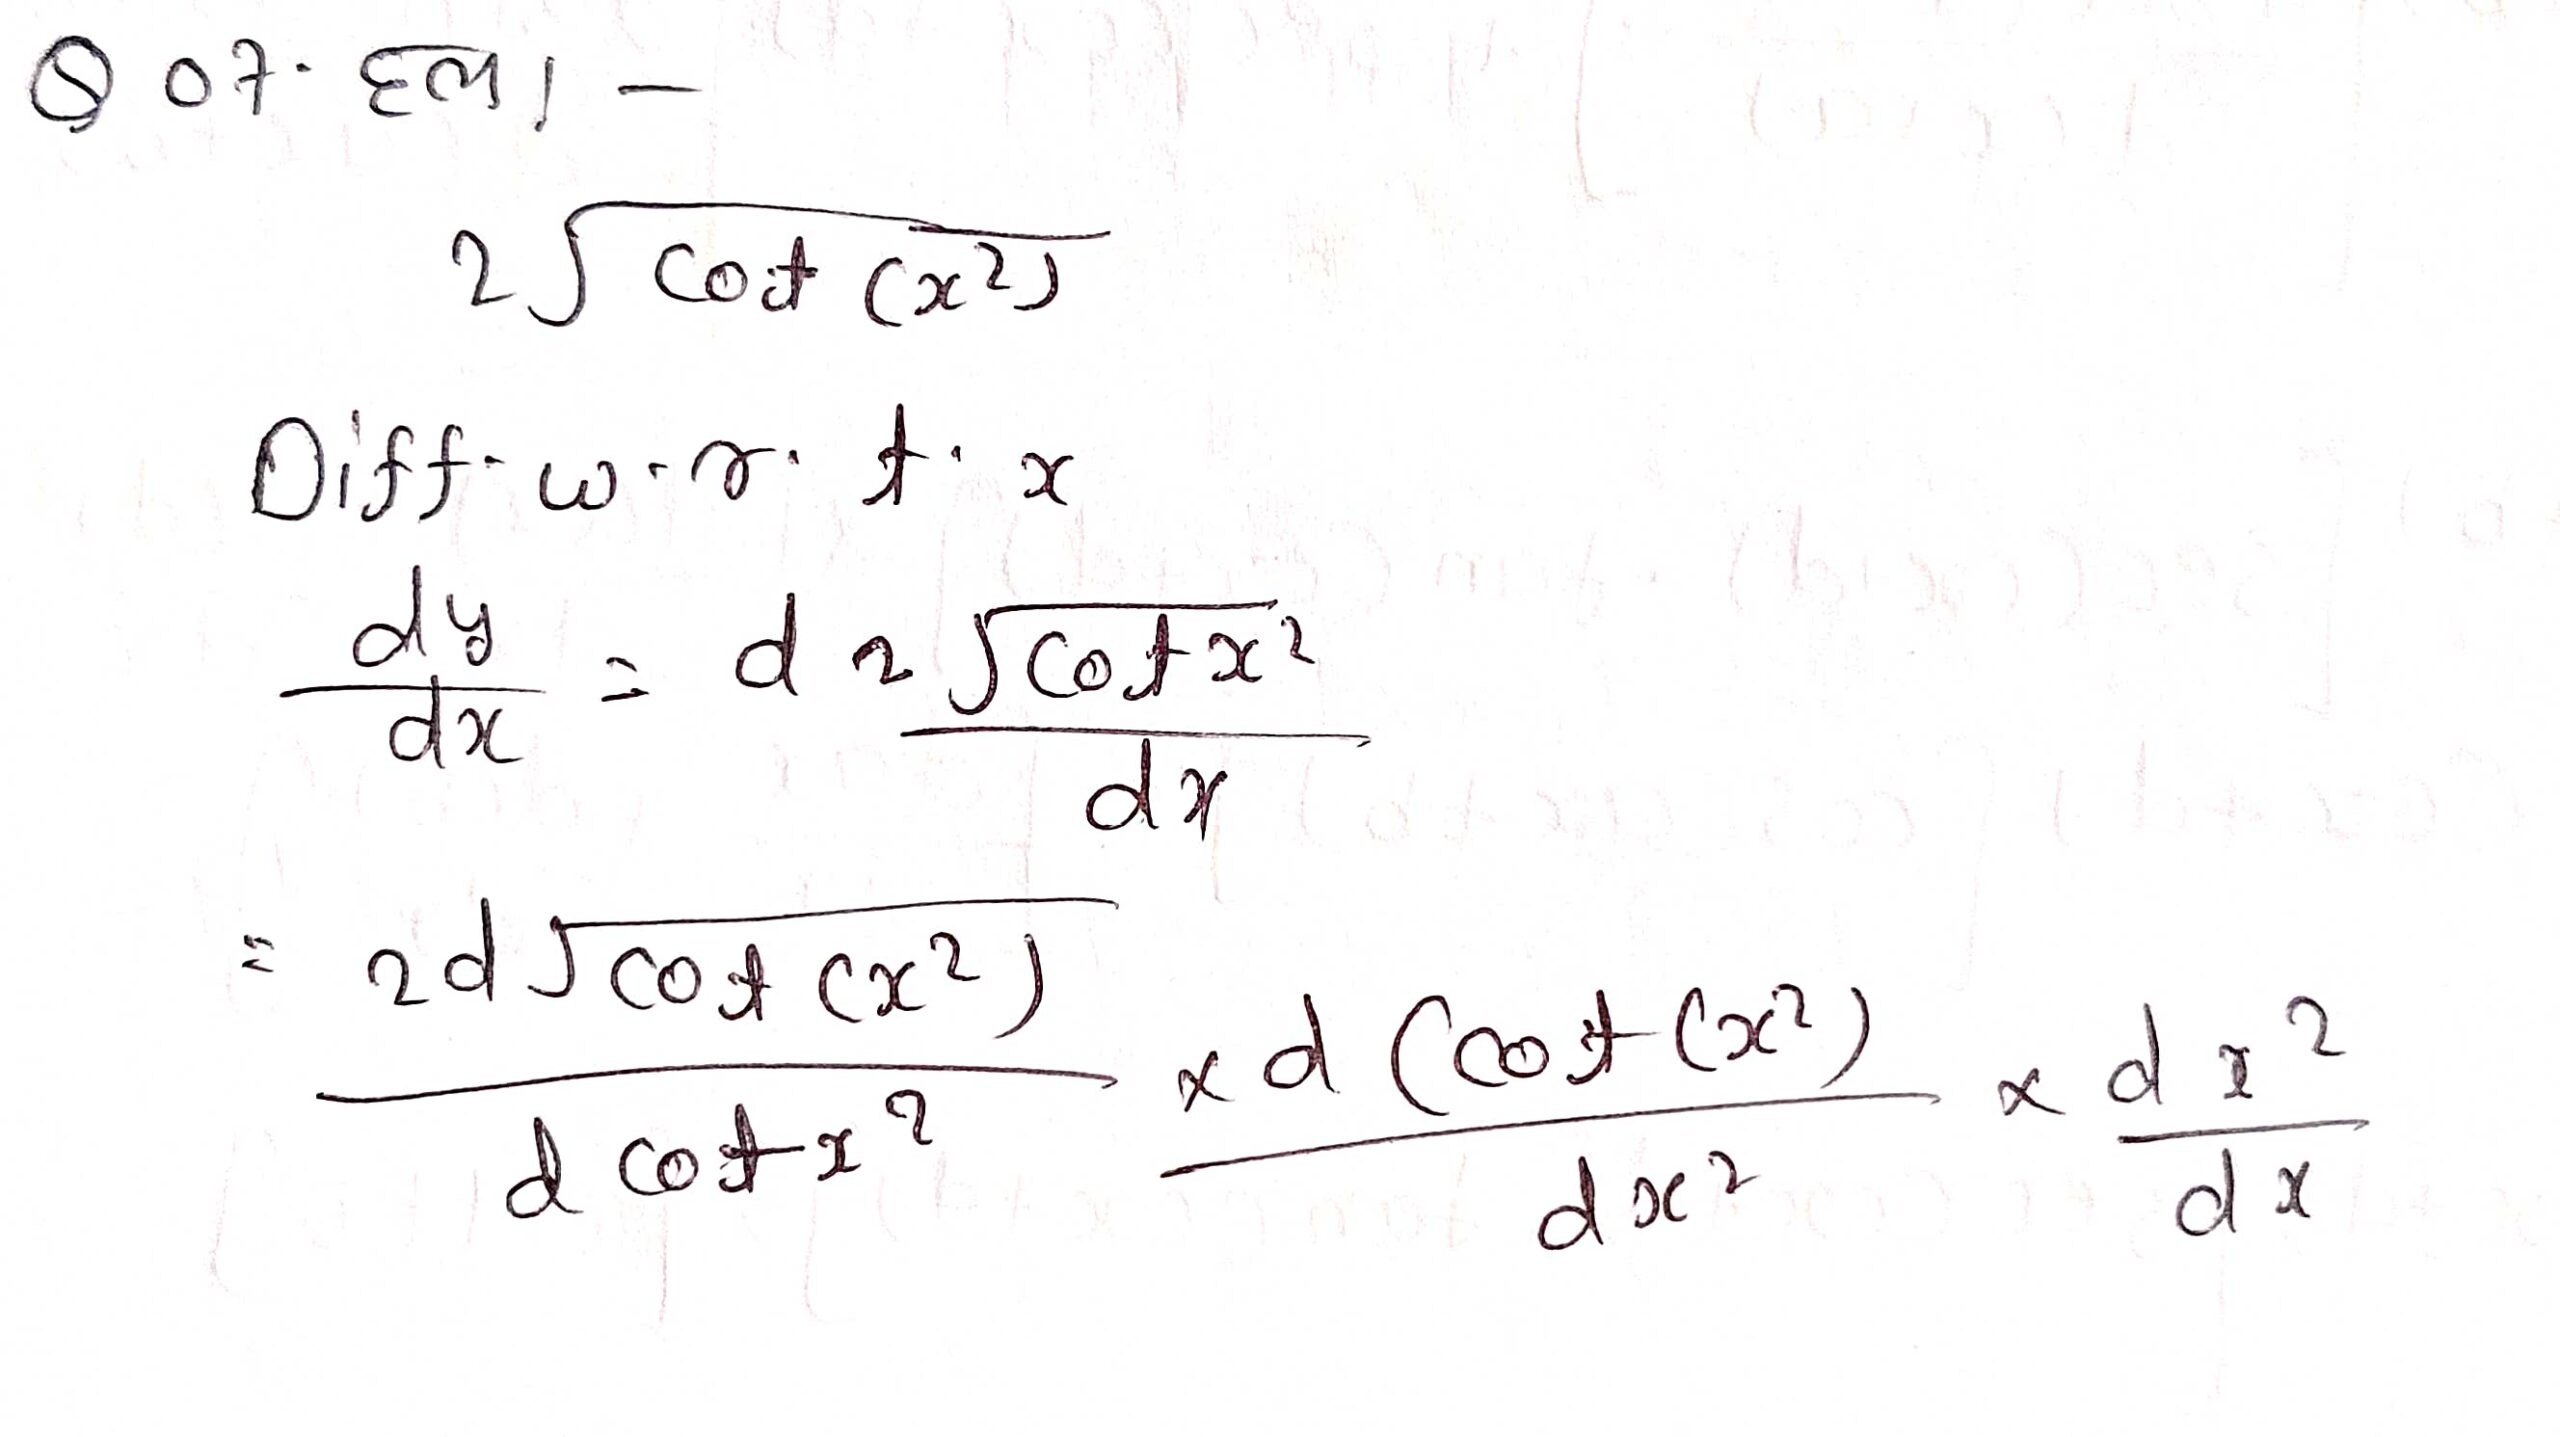 Q 07. हल। -
2√cot (x²)
Diff. w.r.t. x
dy/dx = d 2√cot x² / dx
= 2d√cot (x²) / d cot x² × d (cot (x²) / dx² × d x² / dx